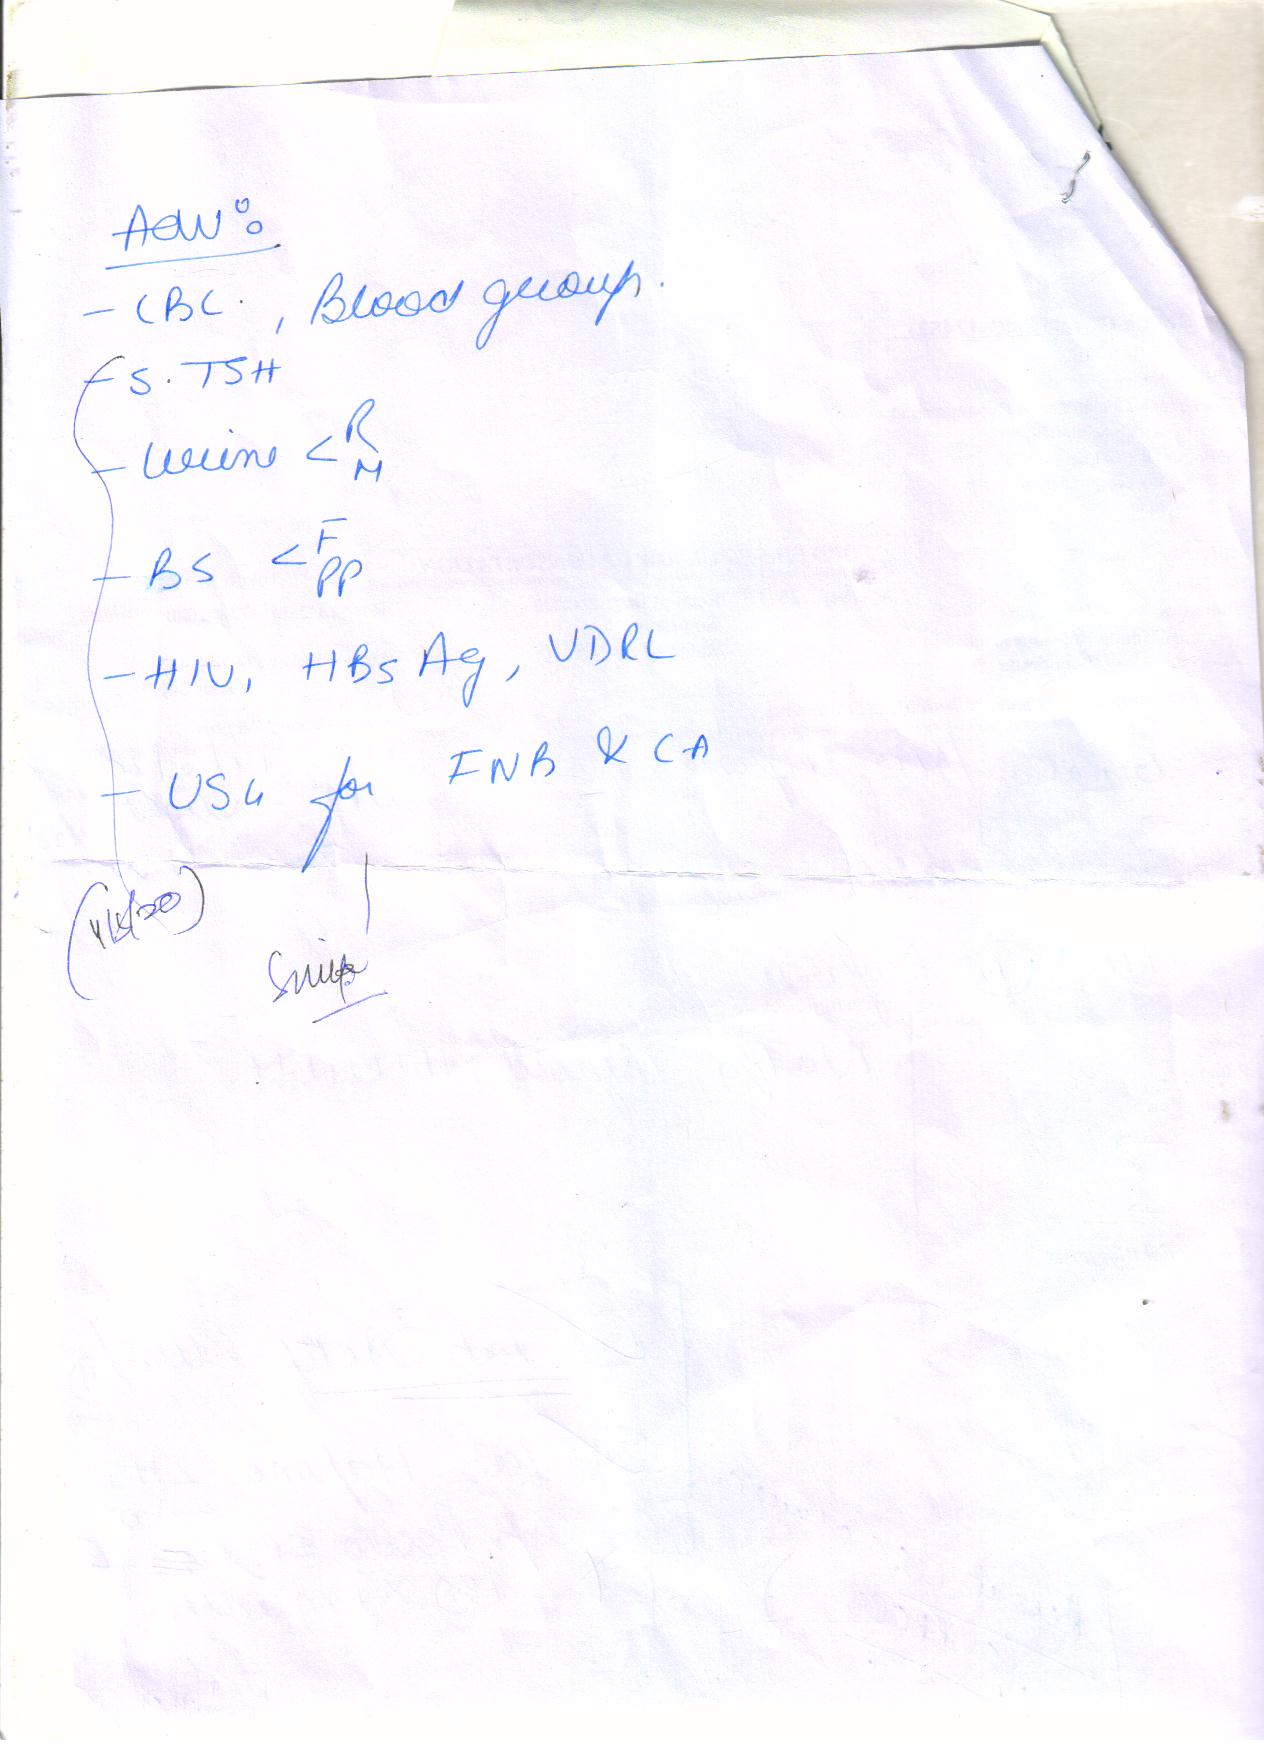 Adv :
- CBC , Blood group.
- S. TSH
- Urine < R
M
- BS < F
PP
- HIV, HBsAg, VDRL
- USG for FNB & CA